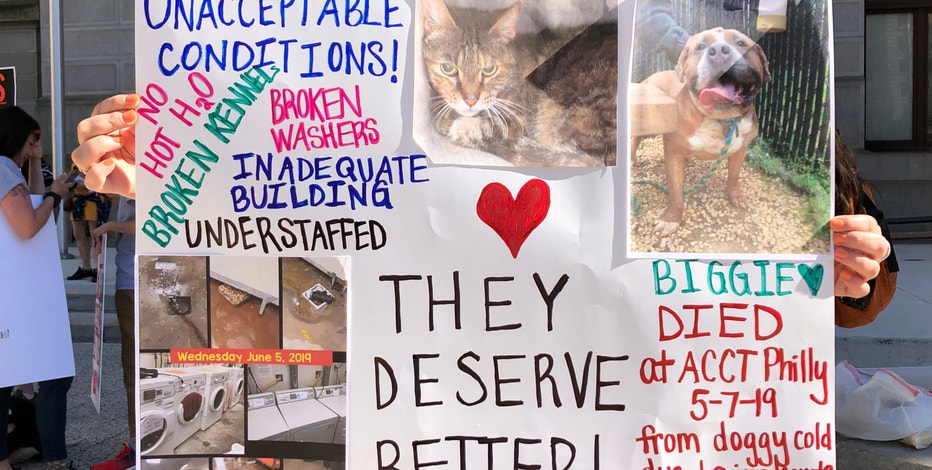 UNACCEPTABLE
CONDITIONS!
NO
HOT H2O
BROKEN KENNELS
BROKEN
WASHERS
INADEQUATE
BUILDING
UNDERSTAFFED
Wednesday June 5, 2019
THEY
DESERVE
BETTER!
BIGGIE
DIED
at ACCT Philly
5-7-19
from doggy cold